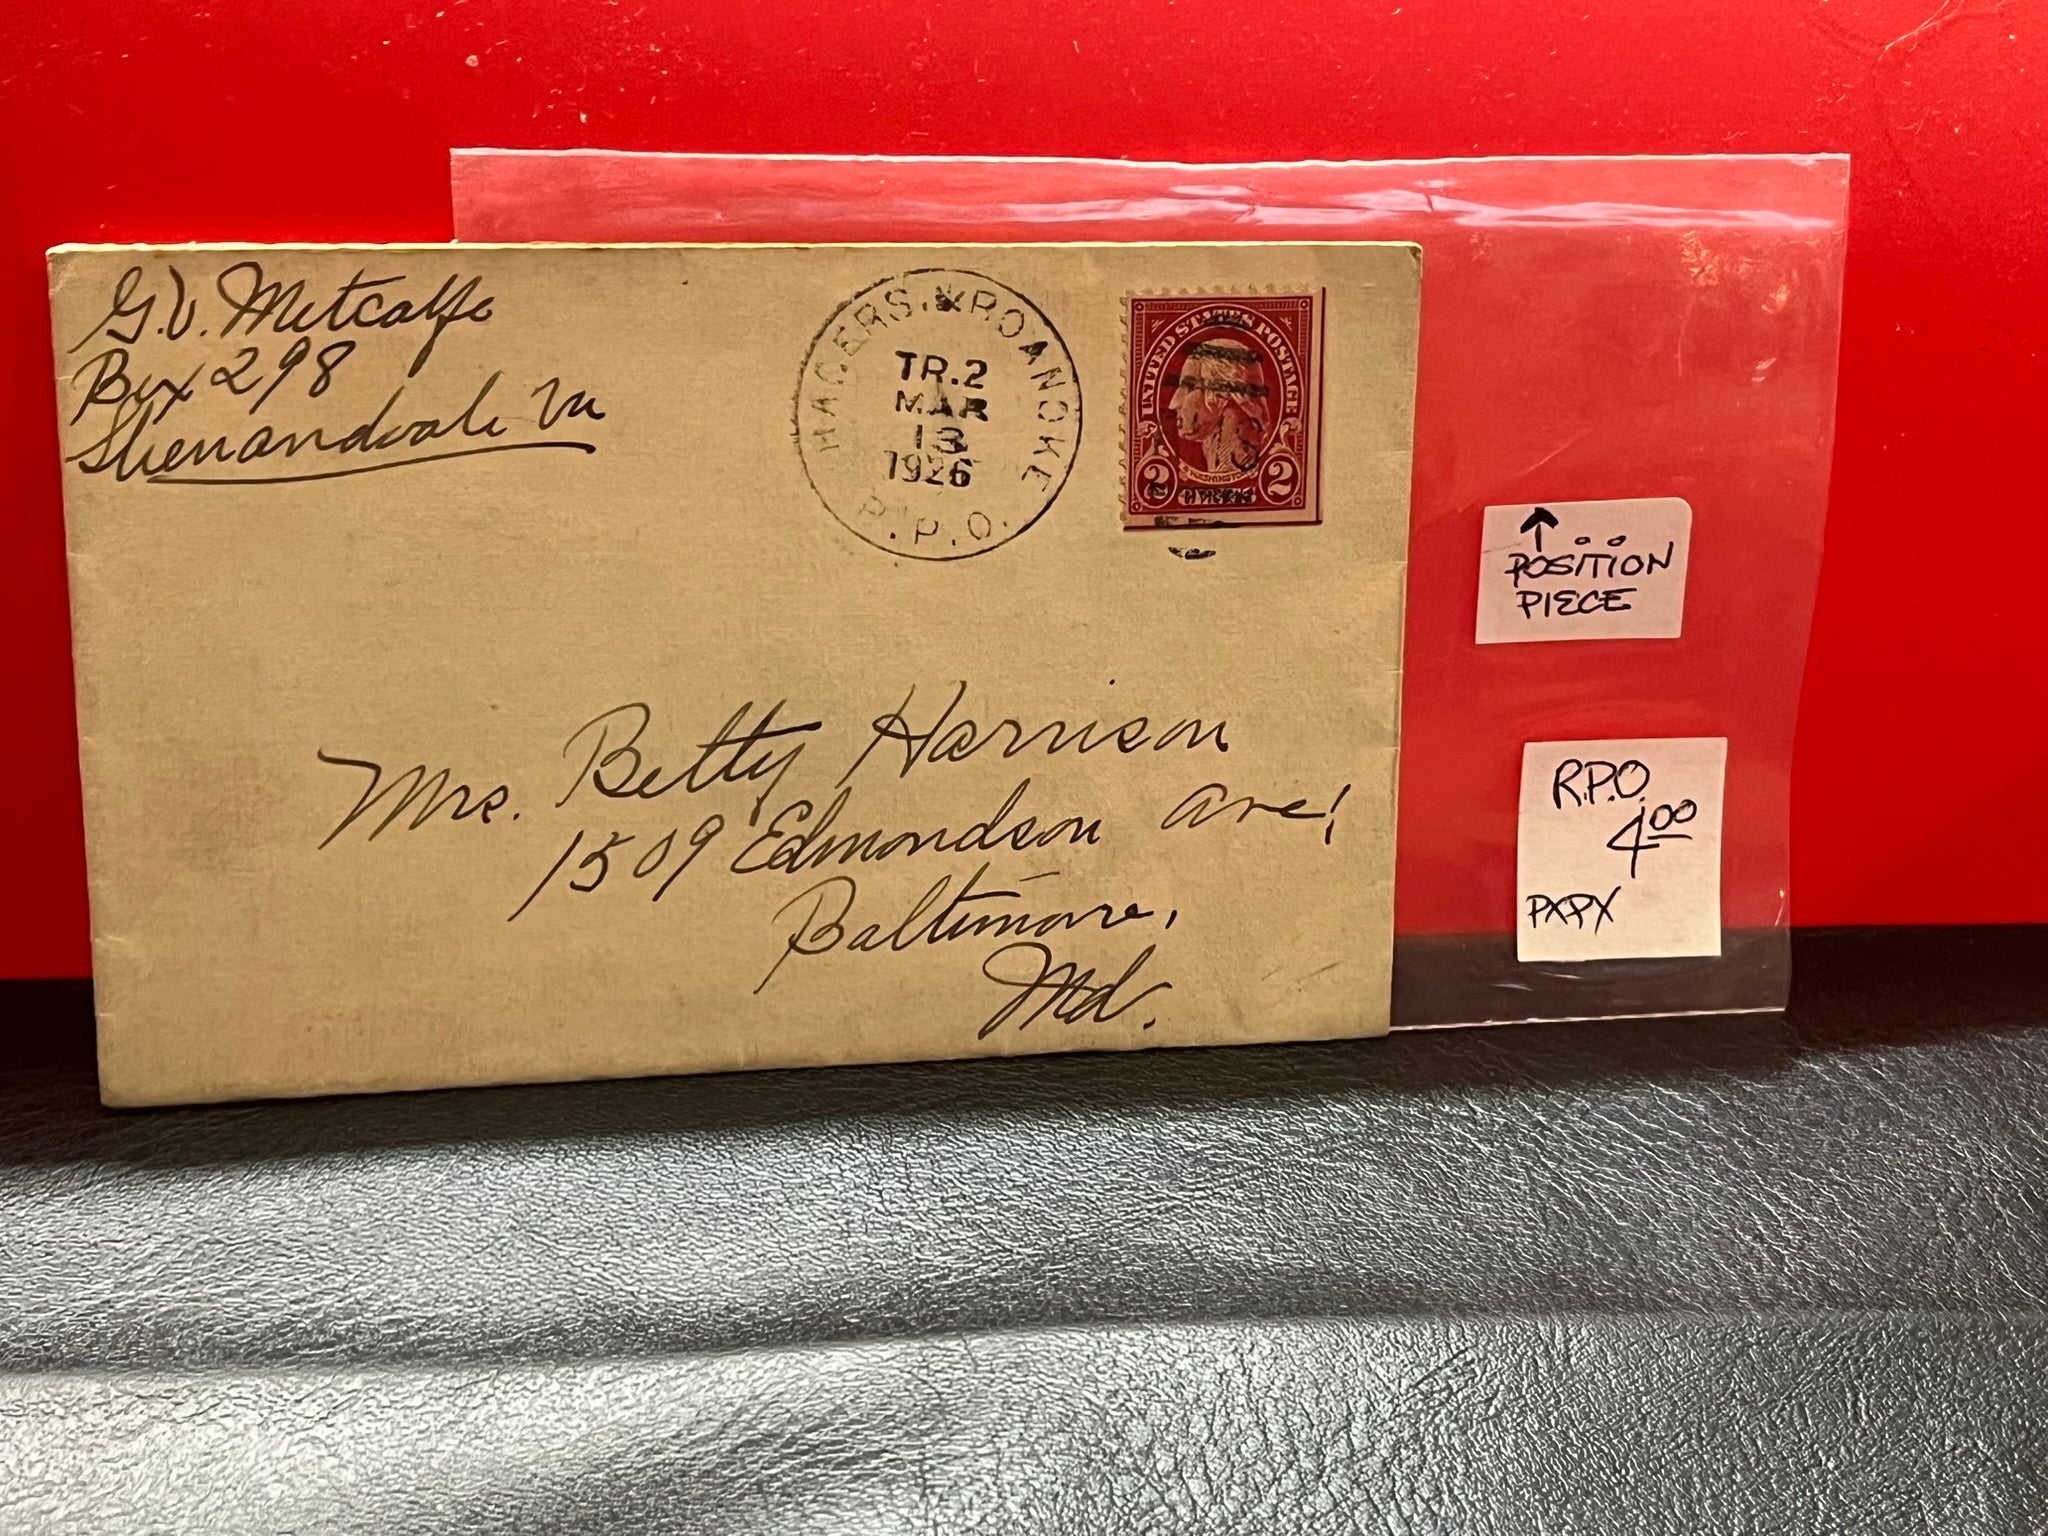 G.V. Metcalfe
Box 298
Shenandoah Va
HAGERS. & ROANOKE
TR.2
MAR
13
1926
R.P.O.
UNITED STATES POSTAGE
WASHINGTON
2 CENTS 2
Mrs. Betty Harrison
1509 Edmondson Ave!
Baltimore,
Md.
POSITION
PIECE
R.P.O.
4.00
PXPX